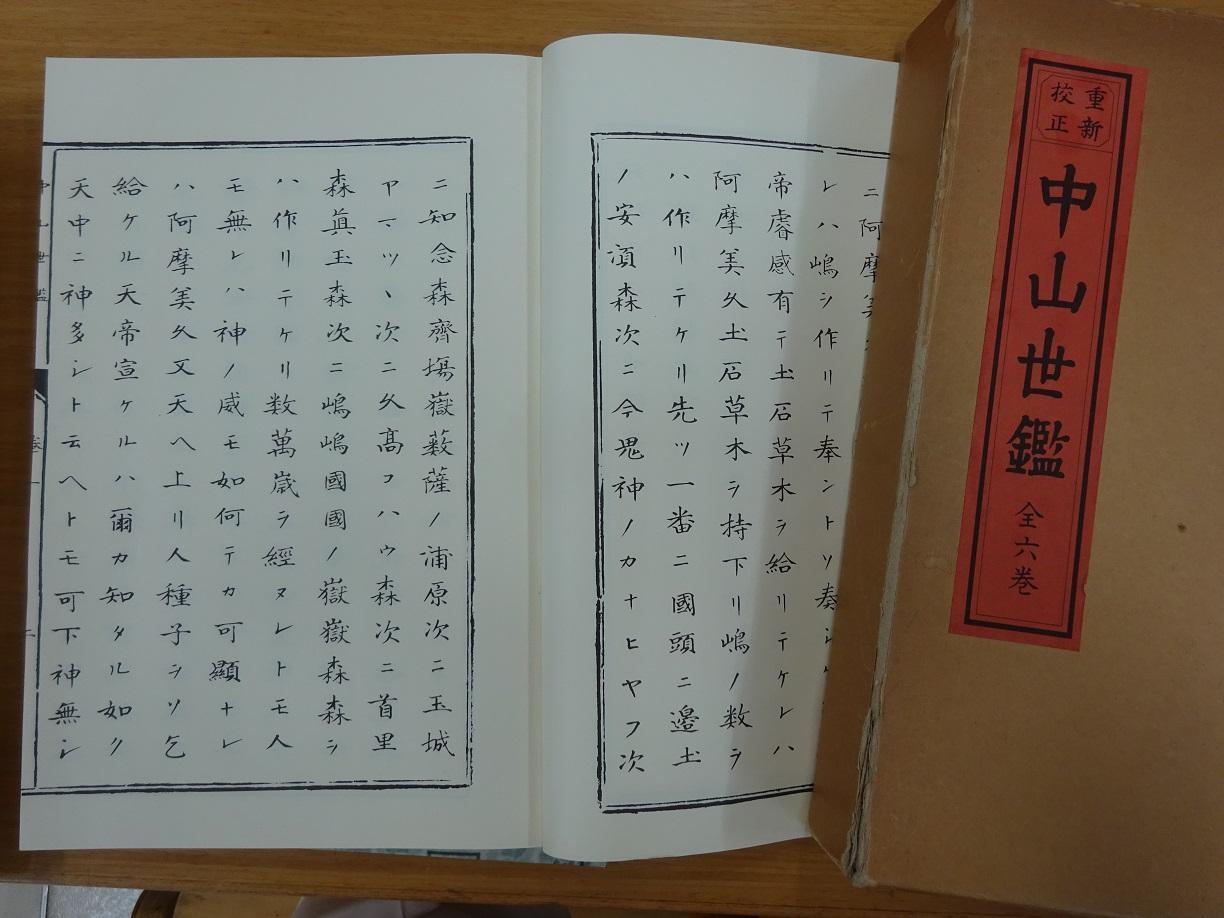 重新
校正
中山世鑑
全六巻
ニ阿摩美
レハ嶋ヲ作リテ奉ントソ奏シ
帝睿感有テ土石草木ヲ給リテケレハ
阿摩美久土石草木ヲ持下リ嶋ノ数ヲ
ハ作リテケリ先ツ一番ニ國頭ニ邉土
ノ安須森次ニ今鬼神ノカナヒヤフ次
ニ知念森齊塲嶽薮薩ノ浦原次ニ玉城
アマツヽ次ニ久髙コハウ森次ニ首里
森真玉森次ニ嶋嶋國國ノ嶽嶽森森ヲ
ハ作リテケリ数萬歳ヲ經ヌレトモ人
モ無レハ神ノ威モ如何テカ可顯ナレ
ハ阿摩美久又天ヘ上リ人種子ヲソ乞
給ケル天帝宣ケルハ爾カ知タル如ク
天中ニ神多シト云ヘトモ可下神無シ
中山世鑑
巻一